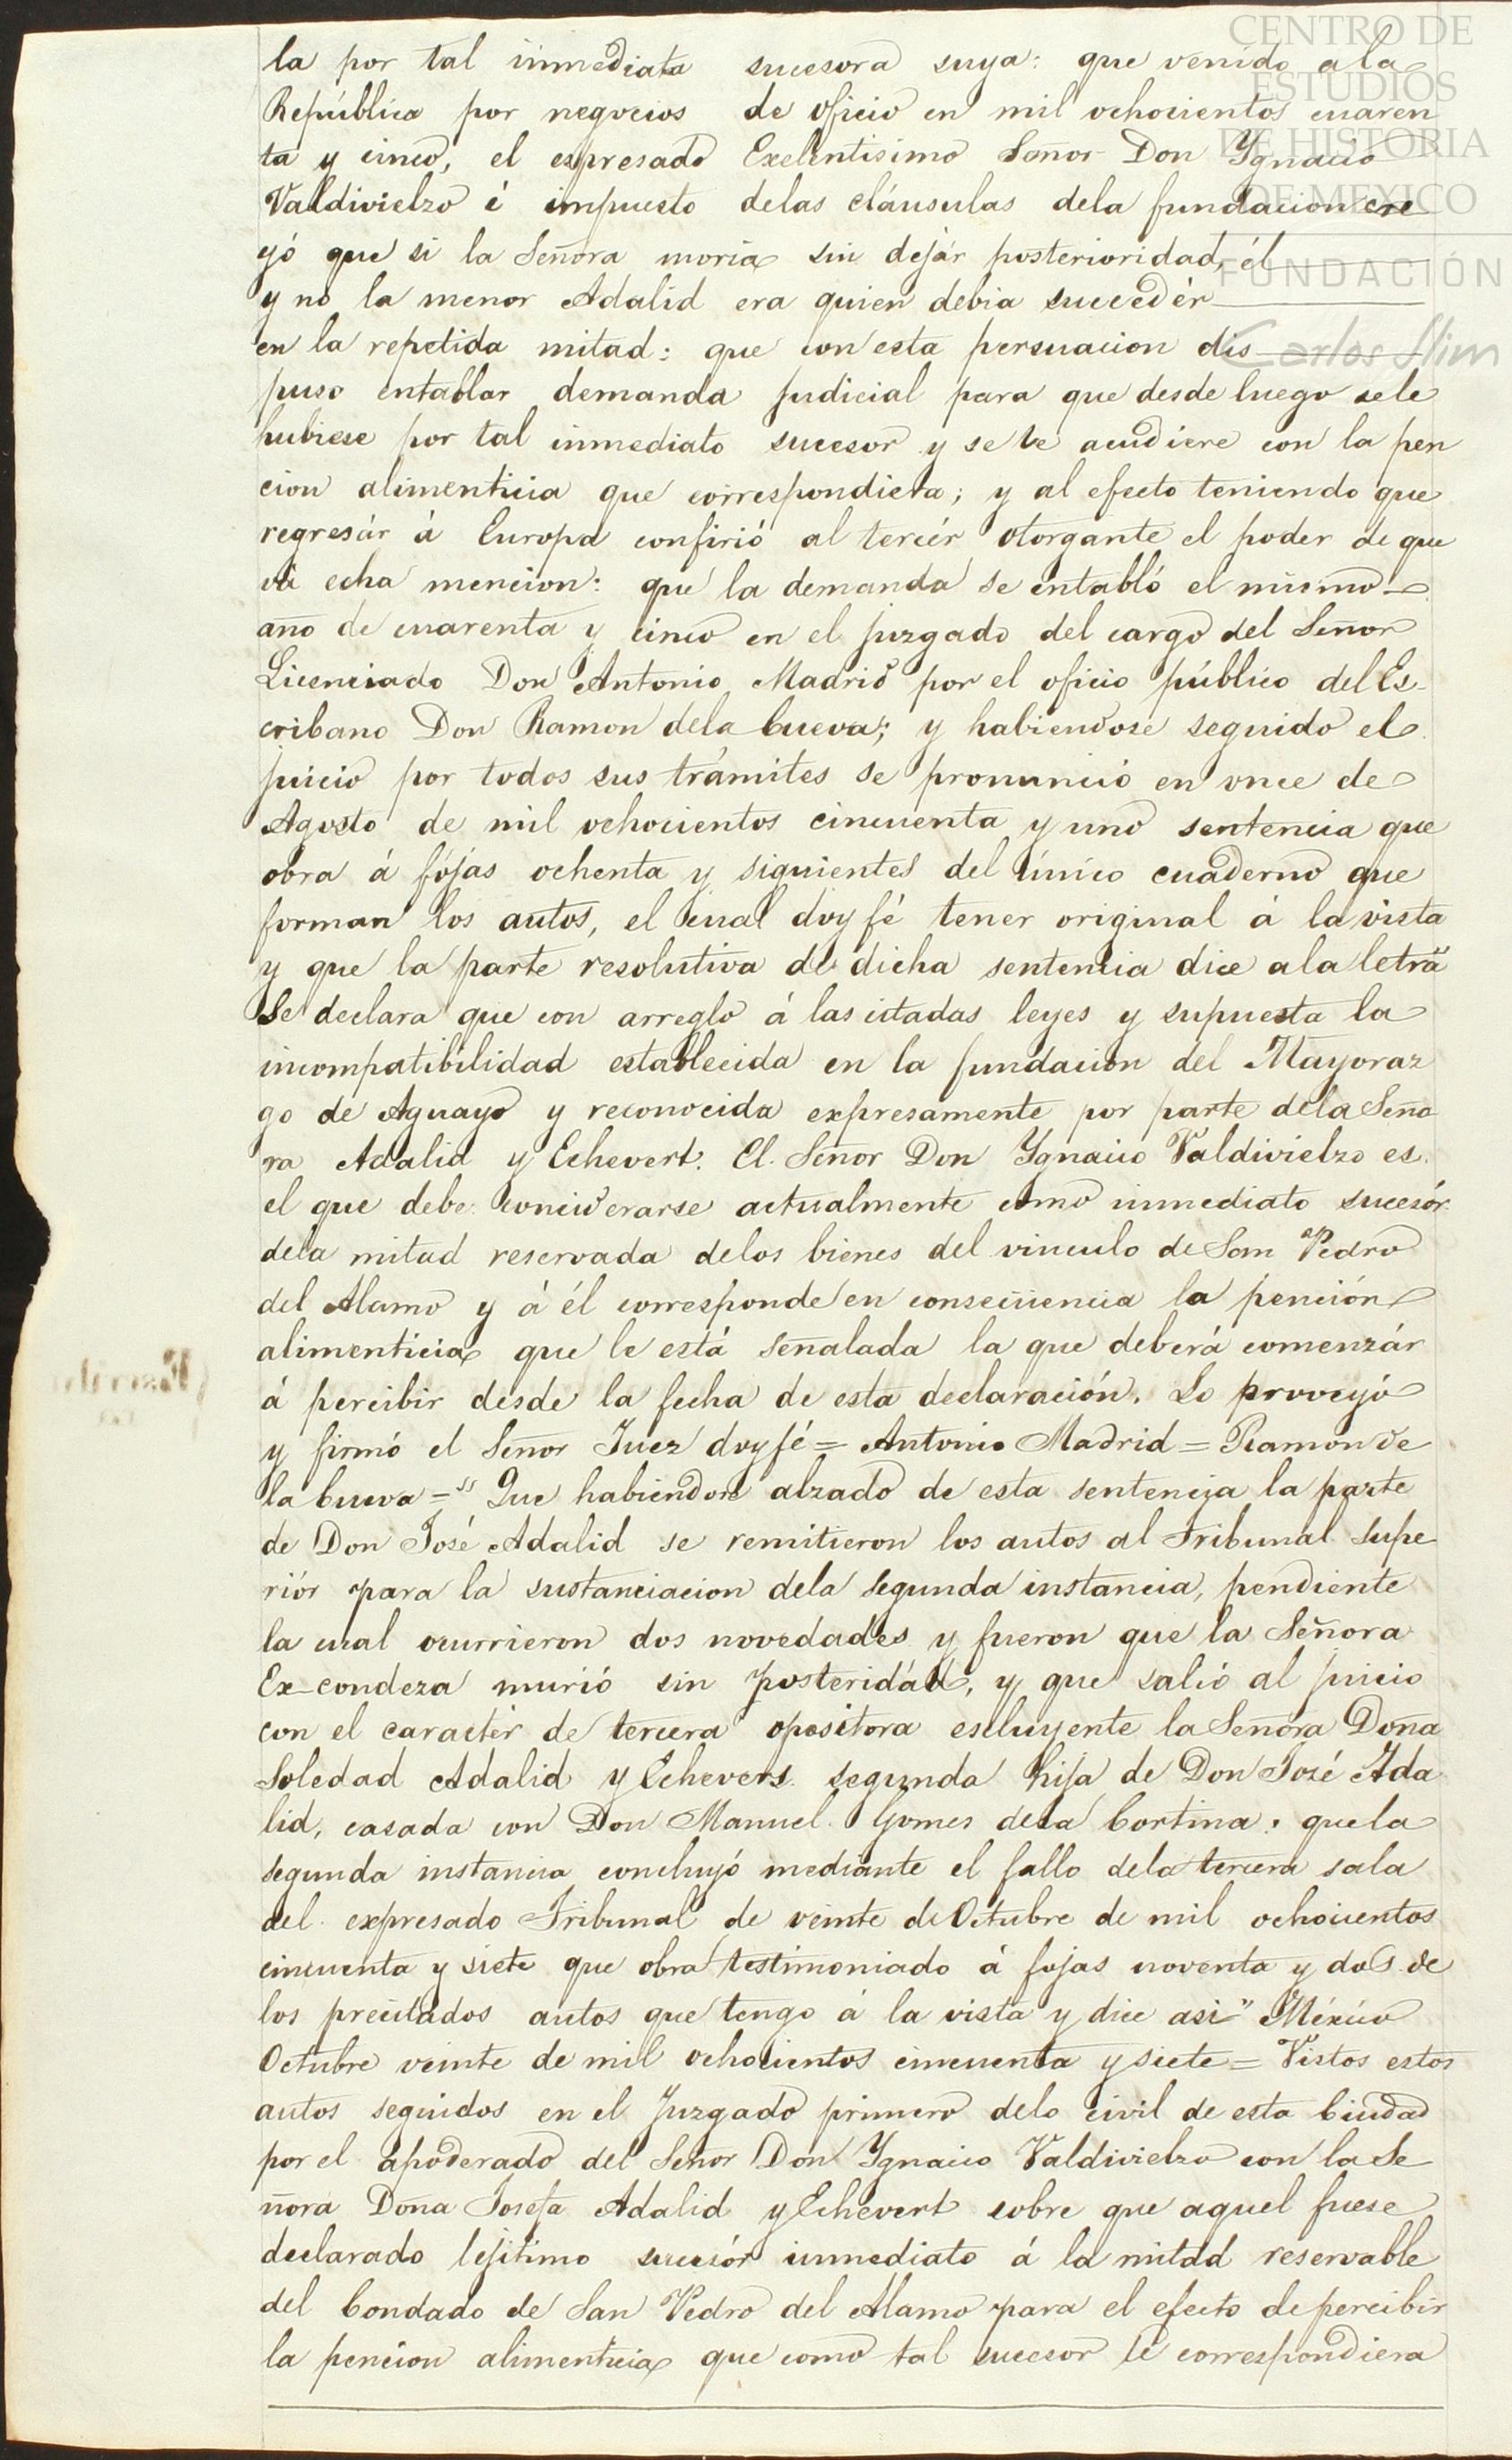 CENTRO DE
ESTUDIOS
DE HISTORIA
DE MEXICO
FUNDACIÓN
Carlos Slim
la por tal inmediata sucesora suya: que venido a la
República por negocios de oficio en mil ochocientos cuaren
ta y cinco, el espresado Exelentisimo Señor Don Ygnacio
Valdivielzo é impuesto delas cláusulas dela fundacion cre
yó que si la Señora moria sin dejár posterioridad, él
y no la menor Adalid era quien debia succedér
en la repetida mitad: que con esta persuacion dis
puso entablar demanda judicial para que desde luego sele
hubiese por tal inmediato sucesor y se le acudiere con la pen
cion alimenticia que correspondiera; y al efecto teniendo que
regresár á Europa confirió al tercér otorgante el poder de que
vá echa mencion: que la demanda se entabló el mismo
año de cuarenta y cinco en el juzgado del cargo del Señor
Licenciado Don Antonio Madrid por el oficio público del Es-
cribano Don Ramon dela Cueva; y habiendose seguido el
juicio por todos sus trámites se pronunció en once de
Agosto de mil ochocientos cincuenta y uno sentencia que
obra á fójas ochenta y siguientes del único cuaderno que
forman los autos, el cual doy fé tener original á la vista
y que la parte resolutiva de dicha sentencia dice a la letra"
Se declara que con arreglo á las citadas leyes y supuesta la
incompatibilidad establecida en la fundacion del Mayoraz
go de Aguayo y reconocida expresamente por parte dela Seño
ra Adalid y Echevert. El Señor Don Ygnacio Valdivielzo es
el que debe conciderarse actualmente como inmediato sucesór
dela mitad reservada delos bienes del vinculo de San Pedro
del Alamo y á él corresponde en consecuencia la pención
alimenticia que le está señalada la que deberá comenzár
á percibir desde la fecha de esta declaración. Lo proveyó
y firmó el Señor Juez doy fé = Antonio Madrid = Ramon de
la Cueva =" Que habiendose alzado de esta sentencia la parte
de Don José Adalid se remitieron los autos al Tribunal Supe
riór para la sustanciacion dela segunda instancia, pendiente
la cual ocurrieron dos novedades y fueron que la Señora
Ex-condeza murió sin posteridád, y que salió al juicio
con el caracter de tercera opositora escluyente la Señora Doña
Soledad Adalid y Echevers segunda hija de Don José Ada
lid, casada con Don Manuel Gomes dela Cortina: que la
segunda instancia concluyó mediante el fallo dela tercera sala
del expresado Tribunal de veinte de Octubre de mil ochocientos
cincuenta y siete que obra testimoniado á fojas noventa y dos de
los precitados autos que tengo á la vista y dice asi" México
Octubre veinte de mil ochocientos cincuenta y siete = Vistos estos
autos seguidos en el Juzgado primero delo civil de esta Ciudad
por el apoderado del Señor Don Ygnacio Valdivielzo con la Se
ñora Doña Josefa Adalid y Echevert sobre que aquel fuese
declarado lejitimo sucesór inmediato á la mitad reservable
del Condado de San Pedro del Alamo para el efecto de percibir
la pencion alimenticia que como tal sucesor le correspondiera